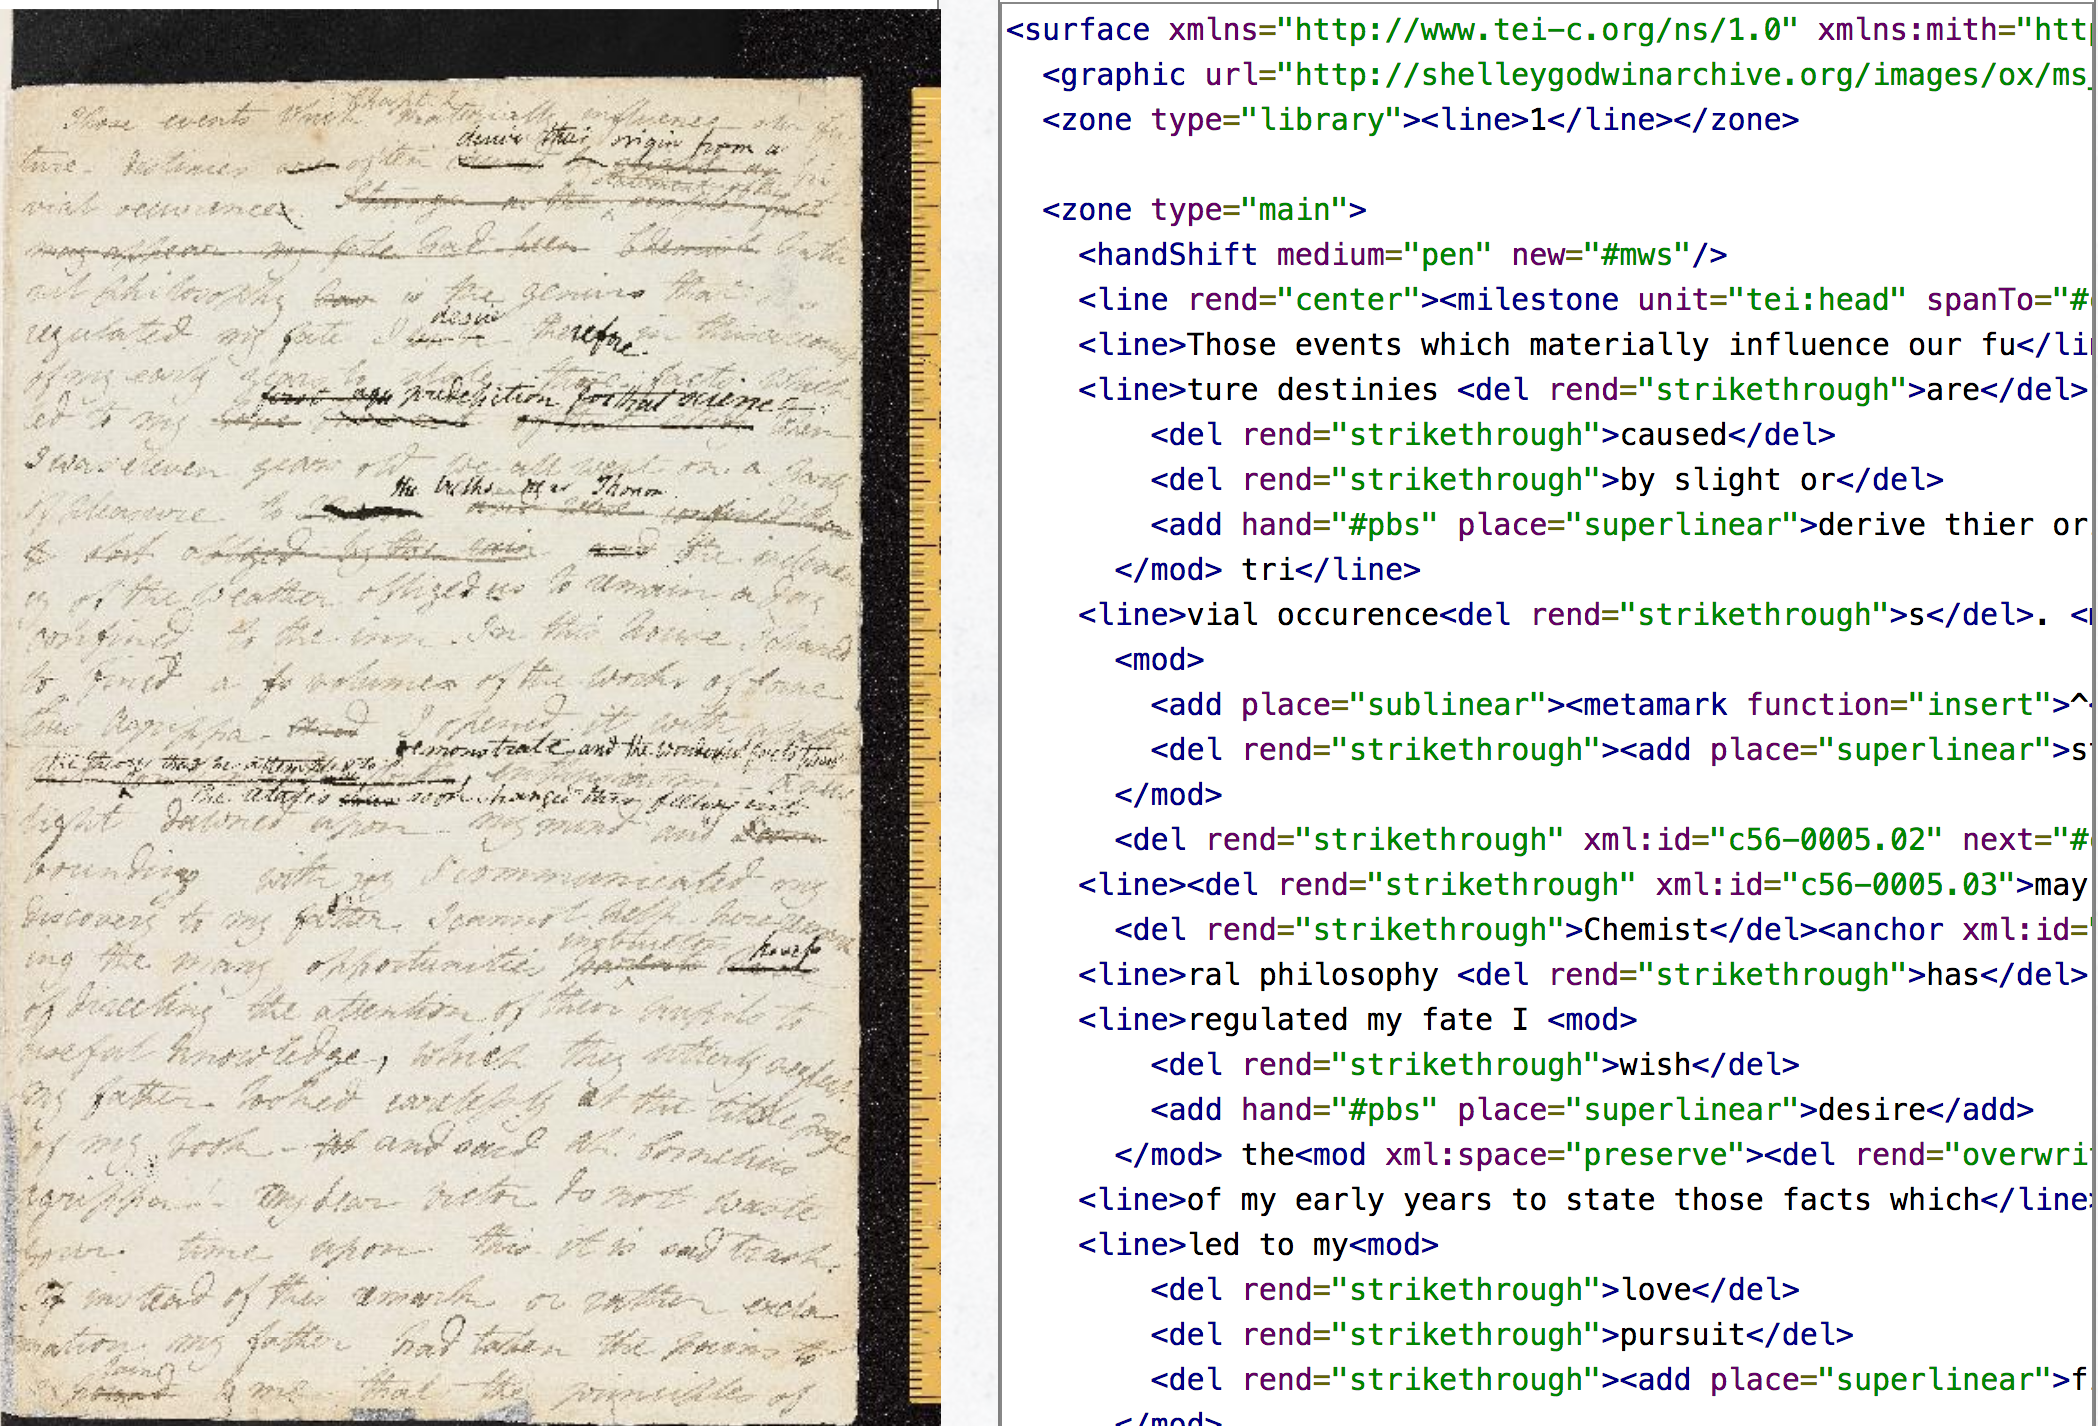 Chapt. 2
Those events which materially influence our fu
derive thier origin from a
ture destinies are often caused by slight or tri
vial occurences. Strange as the simple facts
may appear my fate had been Chemist Natu
ral philosophy has is the genius that has
desire
regulated my fate I wish therefore in this account
of my early years to state those facts which
first age predeliction for that science.
led to my love pursuit when
I was eleven years old we all went on a party
the baths near Thonon
of pleasure to
obliged by the rain and the inclemen
cy of the weather obliged us to remain a day
confined to the inn. In this house I chanced
to find a volume of the works of Corne
lius Agrippa. And I opened it with apathy
the theory that he attempted to demonstrate and the wonderful facts
he relates soon changed this feeling into
light dawned upon my mind and
bounding with joy I communicated my
discovery to my father. I cannot help here remark
instructors possess
ing the many opportunities parents have
of directing the attention of their pupils to
useful knowledge, which they utterly neglect.
My father looked carelessly at the title page
of my book and said ah! Cornelius
Agrippa! My dear victor do not waste
your time upon this it is sad trash.
If instead of this remark or rather excla
mation my father had taken the pains to
to me that the principles of
<surface xmlns="http://www.tei-c.org/ns/1.0" xmlns:mith="htt
<graphic url="http://shelleygodwinarchive.org/images/ox/ms_
<zone type="library"><line>1</line></zone>
<zone type="main">
<handShift medium="pen" new="#mws"/>
<line rend="center"><milestone unit="tei:head" spanTo="#
<line>Those events which materially influence our fu</li
<line>ture destinies <del rend="strikethrough">are</del>
<del rend="strikethrough">caused</del>
<del rend="strikethrough">by slight or</del>
<add hand="#pbs" place="superlinear">derive thier or
</mod> tri</line>
<line>vial occurence<del rend="strikethrough">s</del>. <
<mod>
<add place="sublinear"><metamark function="insert">^
<del rend="strikethrough"><add place="superlinear">s
</mod>
<del rend="strikethrough" xml:id="c56-0005.02" next="#
<line><del rend="strikethrough" xml:id="c56-0005.03">may
<del rend="strikethrough">Chemist</del><anchor xml:id=
<line>ral philosophy <del rend="strikethrough">has</del>
<line>regulated my fate I <mod>
<del rend="strikethrough">wish</del>
<add hand="#pbs" place="superlinear">desire</add>
</mod> the<mod xml:space="preserve"><del rend="overwri
<line>of my early years to state those facts which</line
<line>led to my<mod>
<del rend="strikethrough">love</del>
<del rend="strikethrough">pursuit</del>
<del rend="strikethrough"><add place="superlinear">f
</mod>